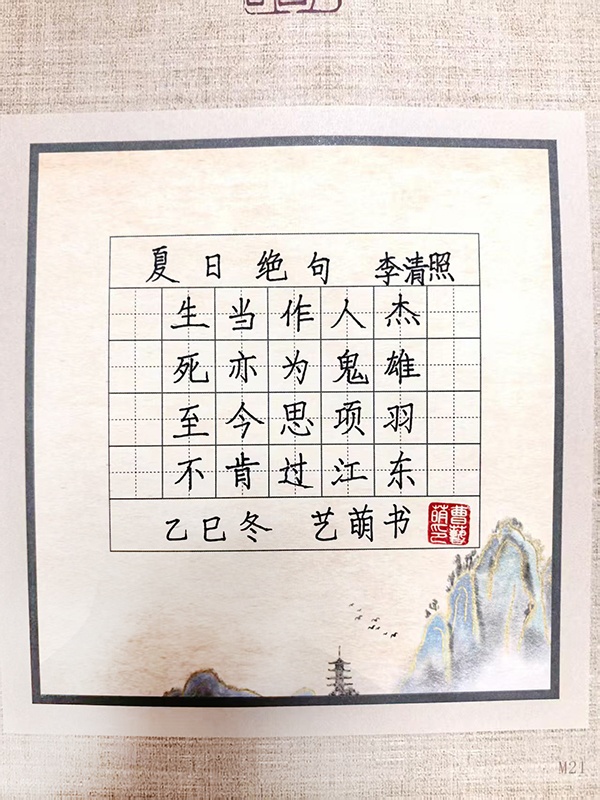 夏日绝句 李清照
生当作人杰
死亦为鬼雄
至今思项羽
不肯过江东
乙巳冬 艺萌书
曹艺萌印
M21